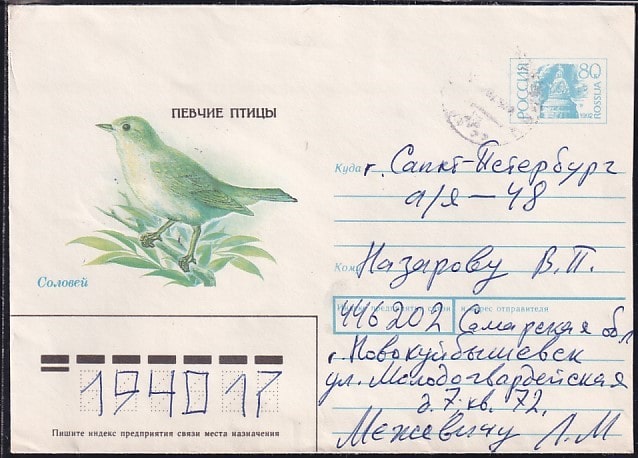 ПЕВЧИЕ ПТИЦЫ
Соловей
РОССИЯ
80
ROSSIJA
1992
Куда г. Санкт-Петербург
а/я — 48
Кому Назарову В. П.
Индекс предприятия связи и адрес отправителя
446202 Самарская обл
г. Новокуйбышевск
ул. Молодогвардейская
д. 7 кв. 72.
Межевичу Л. М
194017
Пишите индекс предприятия связи места назначения